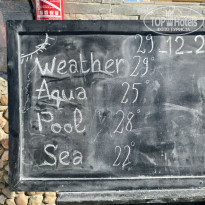 29-12-2
Weather 29°
Aqua 25°
Pool 28°
Sea 22°
TopHotels